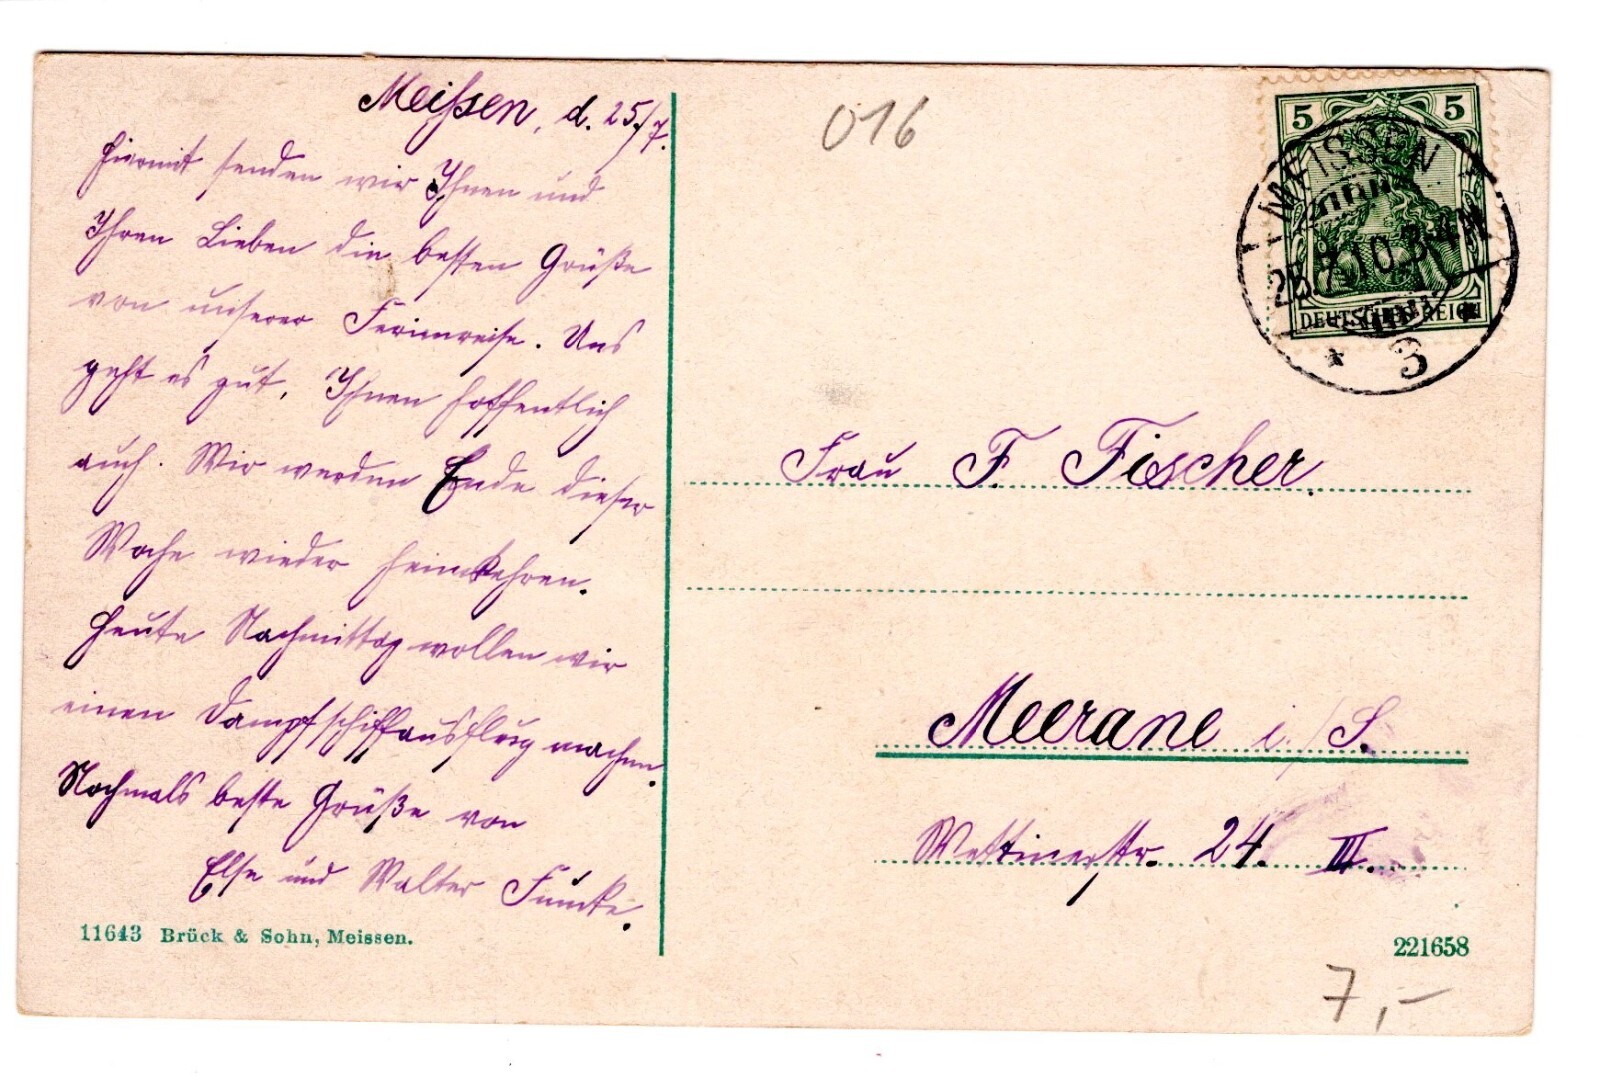 Meißen, d. 25./7.
Hiermit senden wir Ihnen und
Ihren Lieben die besten Grüße
von unserer Ferienreise. Uns
geht es gut, Ihnen hoffentlich
auch. Wir werden Ende dieser
Woche wieder heimkehren.
Heute Nachmittag wollen wir
einen Dampfschiffausflug machen.
Nochmals beste Grüße von
Else und Walter Funke.
11643 Brück & Sohn, Meissen.
016
5 5
DEUTSCHES REICH
MEISSEN
25.7.10.3-4N
* 3
Frau F. Fischer.
Meerane i./S.
Wettinerstr. 24. III.
221658
7,-